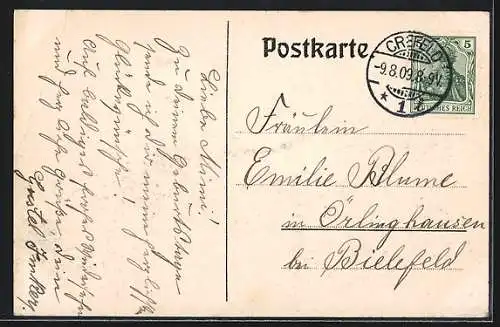 Postkarte
CREFELD
-9.8.09.8-9V.
* 1 *
5
DEUTSCHES REICH
Fräulein
Emilie Blume
in Örlinghausen
bei Bielefeld
Liebe Mimi!
Zu Deinem Geburtstage
sende ich dir meine herzlichsten
Glückwünsche!
Auf baldiges frohes Wiedersehn
und herzliche Grüße, dein